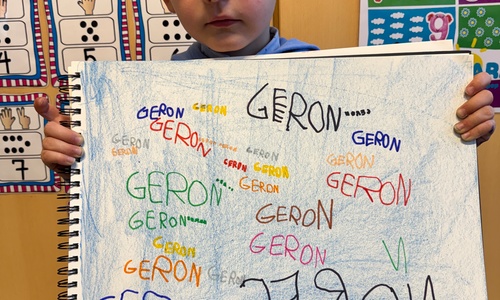 4
5
7
9
GERON
GERON
GERON
GERON
GERON
GERON
GERON
GERON
GERON
GERON
GERON
GERON
GERON
GERON
GERON
GERON
GERON
GERON
GERON
GERON
GERON